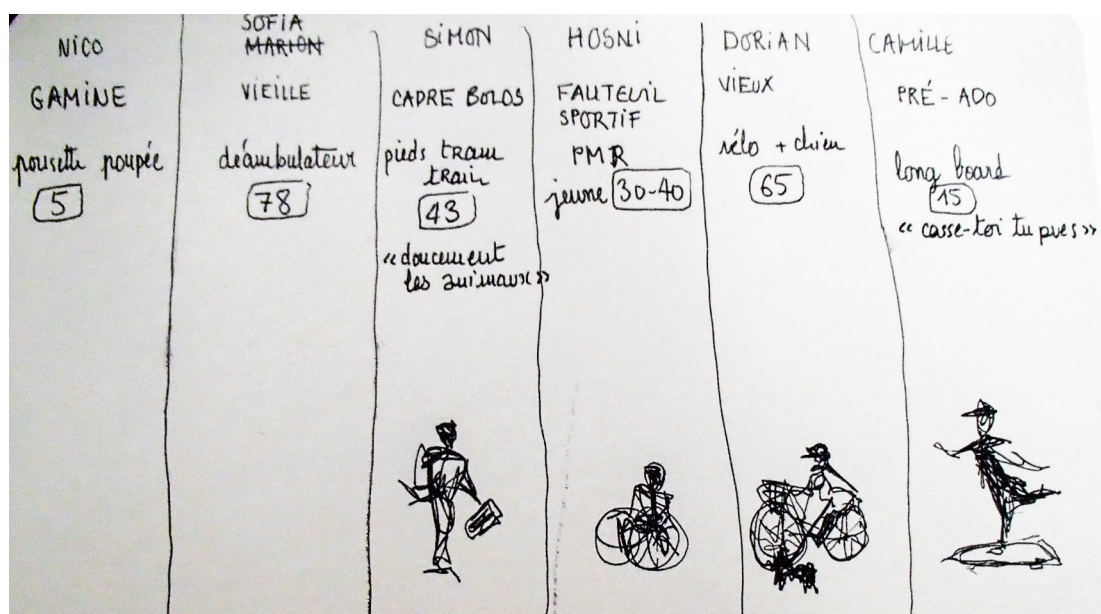 NICO
GAMINE
pousette poupée
5
SOFIA
MARION
VIEILLE
déambulateur
78
SIMON
CADRE BOLOS
pieds tram
train
43
«doucement
les animaux»
HOSNI
FAUTEUIL
SPORTIF
PMR
jeune 30-40
DORIAN
VIEUX
vélo + chien
65
CAMILLE
PRÉ-ADO
long board
15
«casse-toi tu pues»